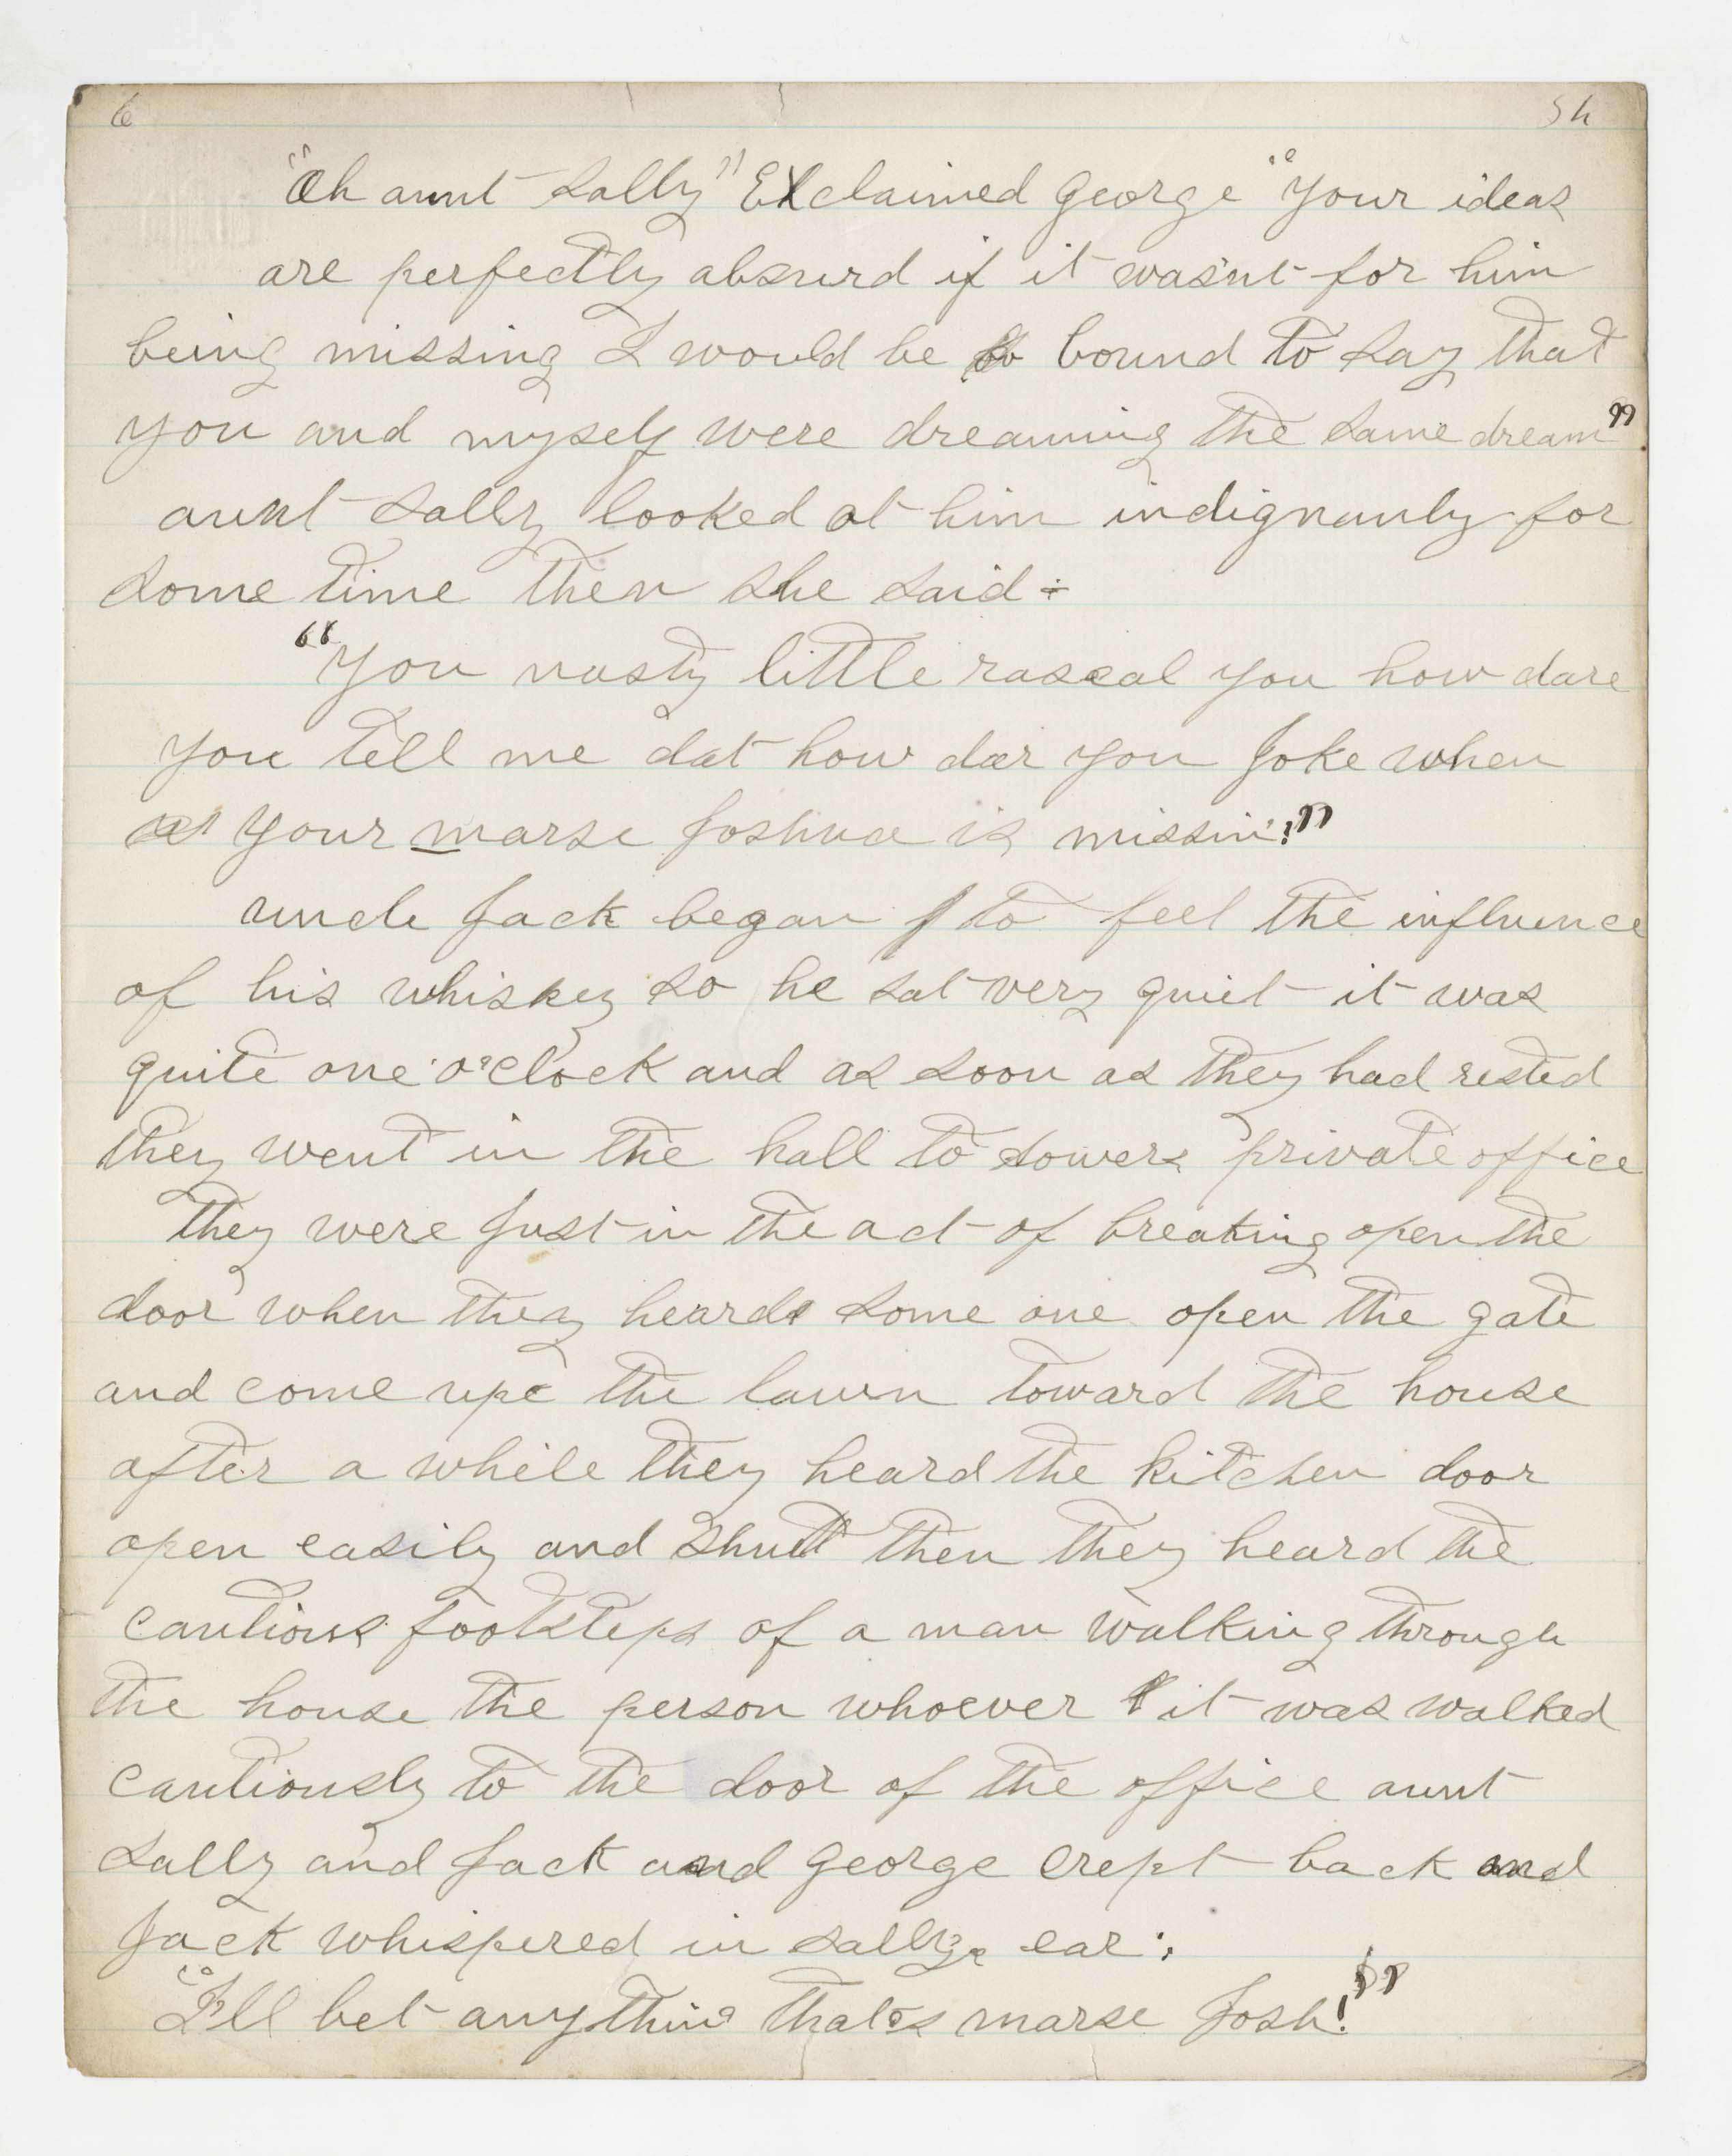 6 54
"Oh aunt Sally" Exclaimed George "Your ideas
are perfectly absurd if it wasnt for him
being missing I would be bound to say that
you and myself were dreaming the same dream"
aunt Sally looked at him indignanly for
some time then she said-
"You nasty little rascal you how dare
you tell me dat how dar you joke when
your marse Joshua is missin'!"
uncle Jack began to feel the influence
of his whiskey so he sat very quiet it was
quite one o'clock and as soon as they had rested
they went in the hall to dowers private office
They were just in the act of breaking open the
door when they heard some one open the gate
and come up the lawn toward the house
after a while they heard the kitchen door
open easily and shut then they heard the
cautious footsteps of a man walking through
the house the person whoever it was walked
cautiously to the door of the office aunt
Sally and Jack and George crept back and
Jack whispered in Sallys ear:
"I'll bet anything that's marse Josh!"